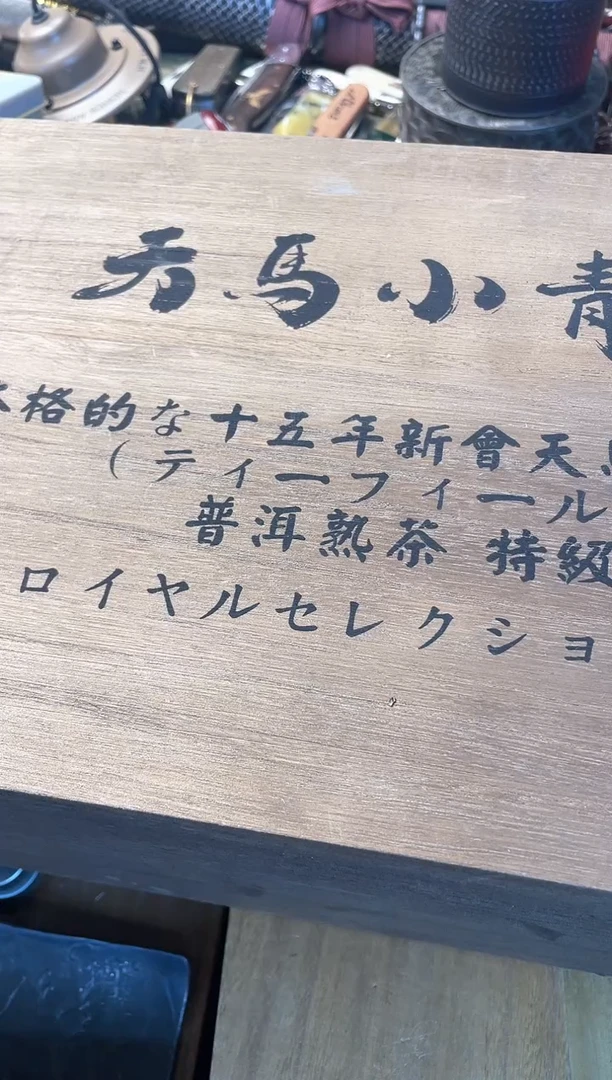 天馬小青
本格的な十五年新會天馬
（ティーフィール
普洱熟茶 特級
ロイヤルセレクショ